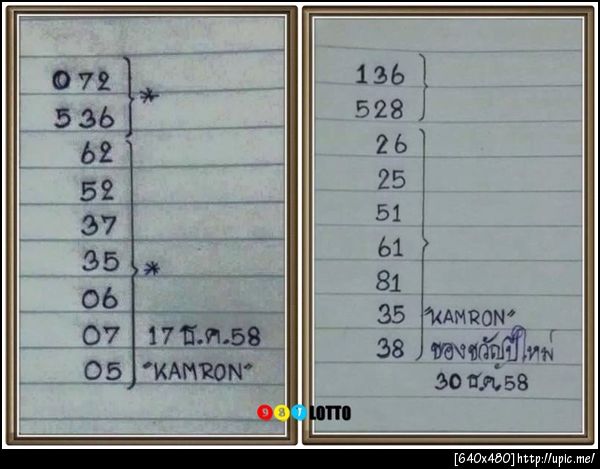 072
536 *
62
52
37
35 *
06
07 17 ธ.ค.58
05 "KAMRON"
136
528
26
25
51
61
81
35 "KAMRON"
38 ของขวัญปีใหม่
30 ธ.ค.58
987 LOTTO
[640x480]http://upic.me/